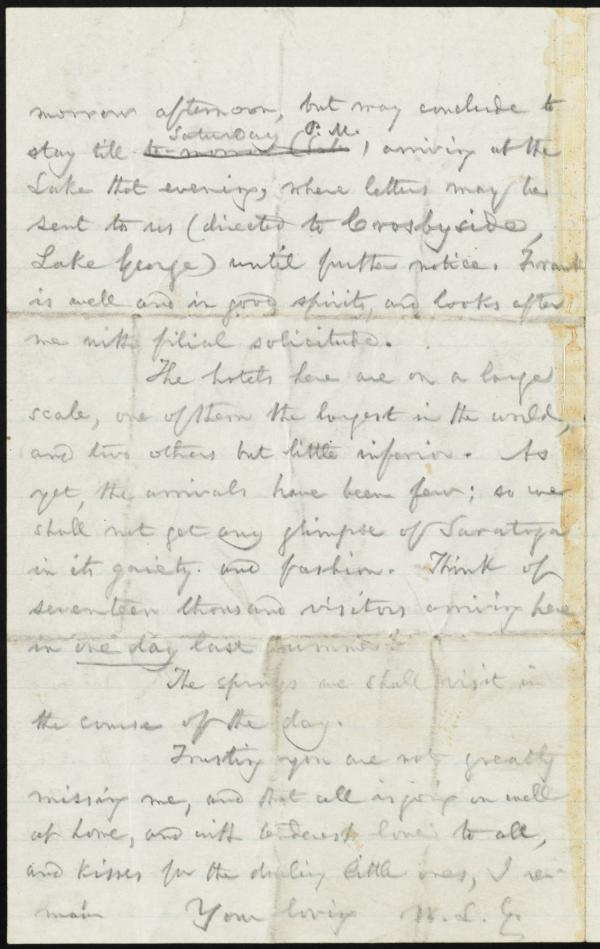 morrow afternoon, but may conclude to
Saturday P. M.
stay till to-morrow, arriving at the
Lake that evening, where letters may be
sent to us (directed to Crosbyside,
Lake George) until further notice. Frank
is well and in good spirits, and looks after
me with filial solicitude.
The hotels here are on a large
scale, one of them the largest in the world,
and two others but little inferior. As
yet, the arrivals have been few; so we
shall not get any glimpse of Saratoga
in its gaiety and fashion. Think of
seventeen thousand visitors arriving here
in one day last summer!
The springs we shall visit in
the course of the day.
Trusting you are not greatly
missing me, and that all is going on well
at home, and with tenderest love to all,
and kisses for the darling little ones, I re-
main Your loving W. L. G.